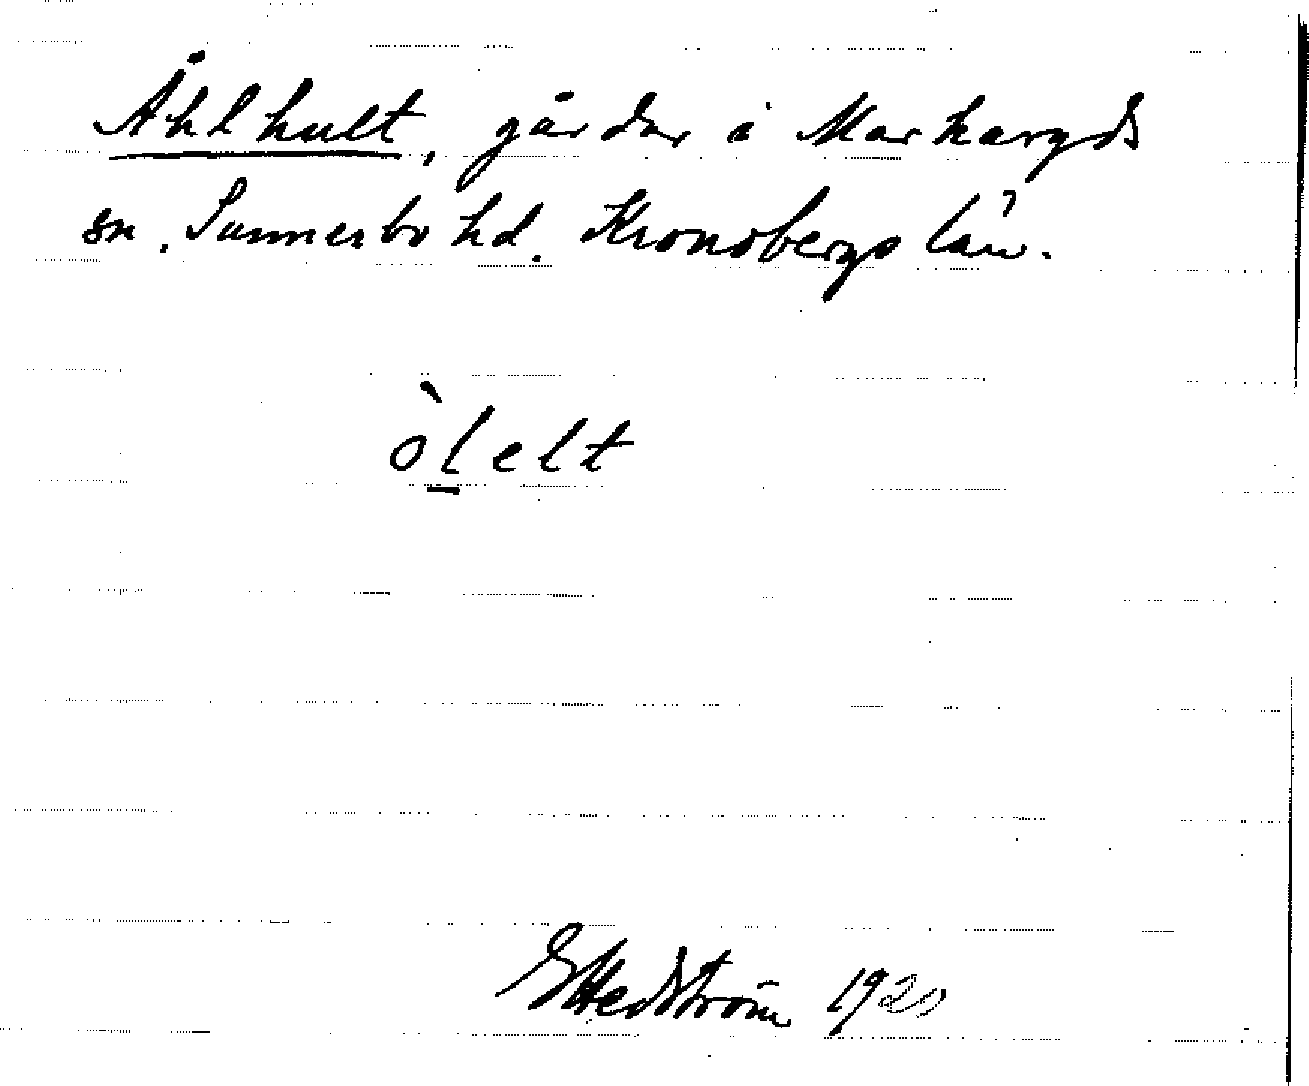 Åhlhult, gårdar i Markaryds
sn. Sunnerbo hd. Kronobergs län.
òlelt
G Hedström 1920